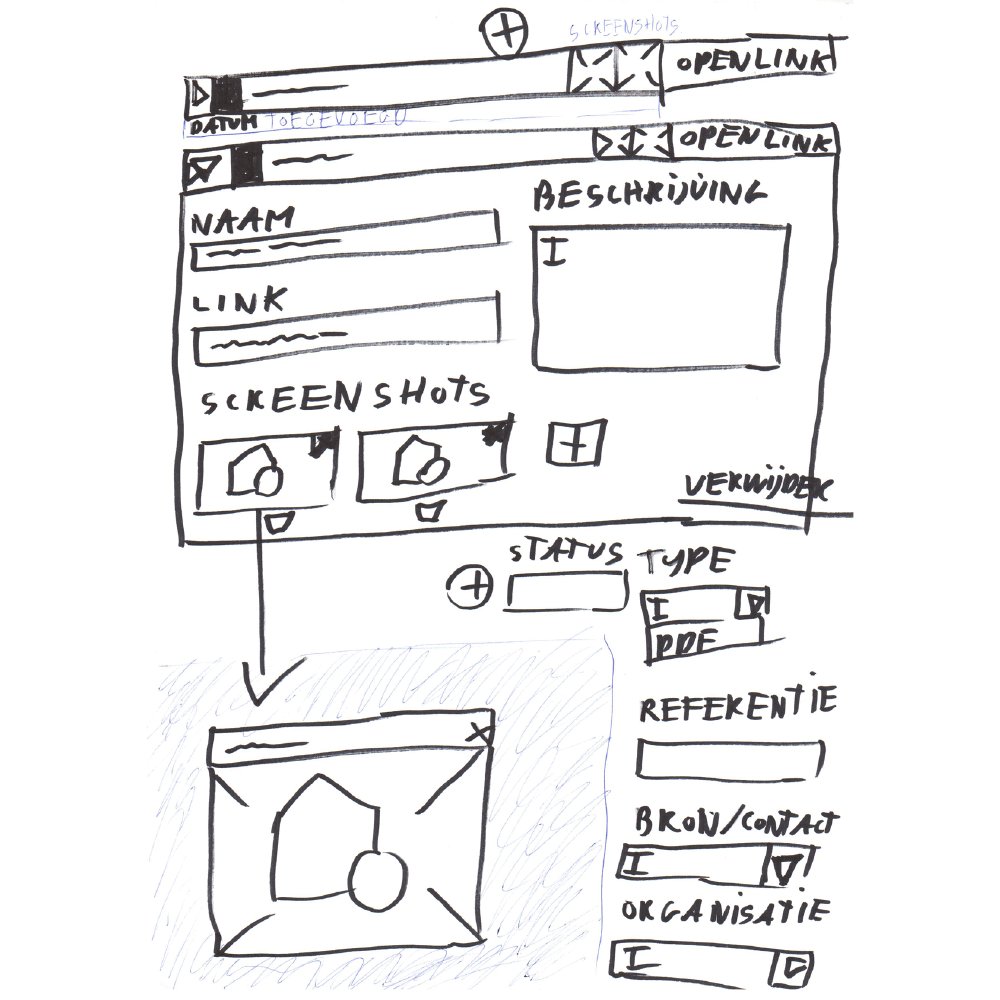 SCREENSHOTS
OPEN LINK
DATUM TOEGEVOEGD
OPEN LINK
NAAM
BESCHRIJVING
LINK
SCREENSHOTS
VERWIJDER
STATUS
TYPE
PDF
REFERENTIE
BRON/CONTACT
ORGANISATIE